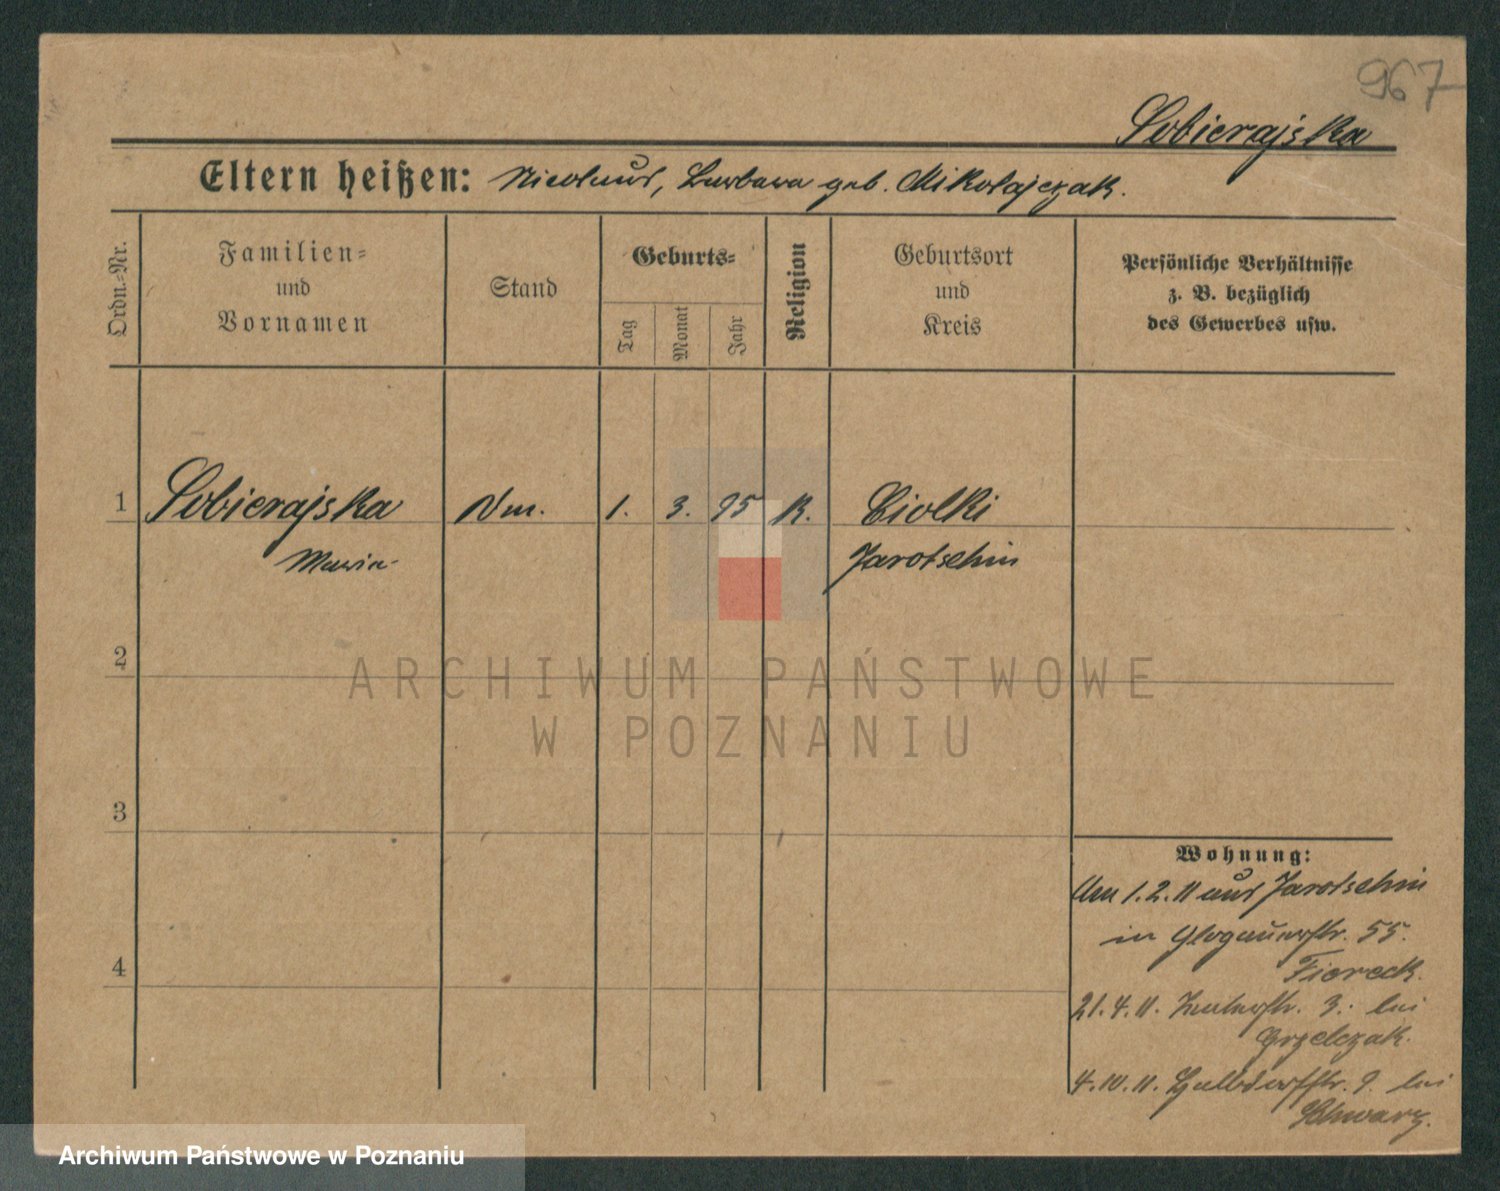 967
Sobierajska
Eltern heißen: Nicolaus, Barbara geb. Mikolajczak.
Ordn.=Nr.
Familien=
und
Vornamen
Stand
Geburts=
Tag
Monat
Jahr
Religion
Geburtsort
und
Kreis
Persönliche Verhältnisse
z. B. bezüglich
des Gewerbes usw.
1 Sobierajska Dm. 1. 3. 95 K. Ciolki
Maria Jarotschin
2
3
4
Wohnung:
Am 1.2.11 aus Jarotschin
in Glogauerstr. 55.
Fiereck.
21.4.11. 3. bei
Grzelczak.
4.10.11. 9. bei
Schwarz.
ARCHIWUM PAŃSTWOWE
W POZNANIU
Archiwum Państwowe w Poznaniu